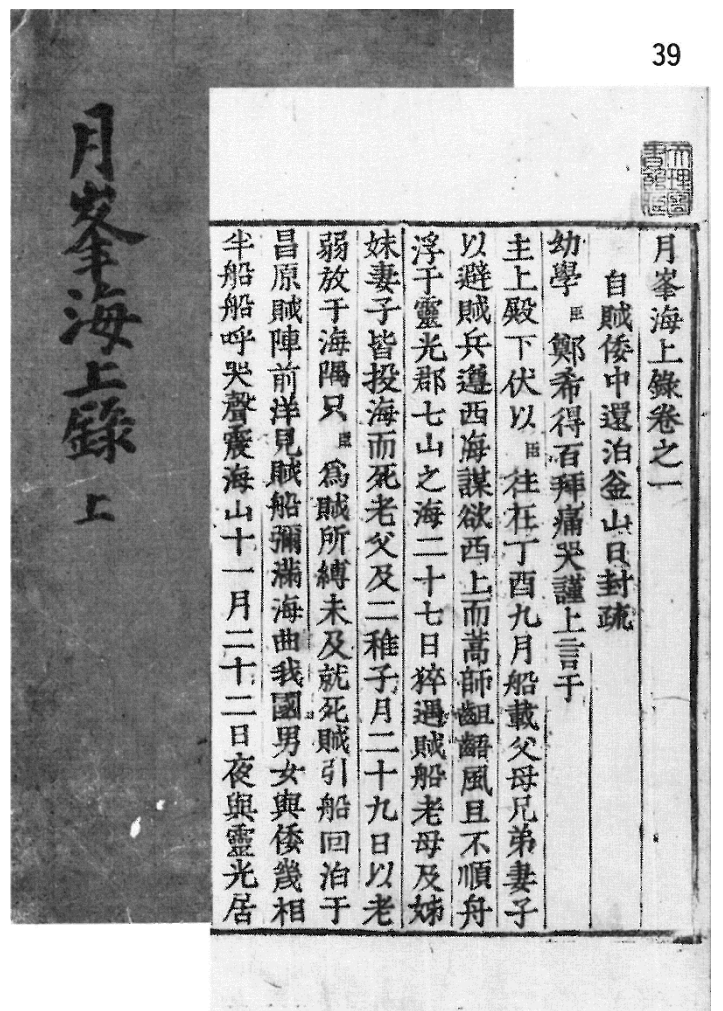 39
月峯海上錄 上
天理圖
書館藏
月峯海上錄卷之一
自賊倭中還泊釜山日封疏
幼學臣鄭希得百拜痛哭謹上言于
主上殿下伏以臣往在丁酉九月船載父母兄弟妻子
以避賊兵遵西海謀欲西上而蒿師齟齬風且不順舟
浮于靈光郡七山之海二十七日猝遇賊船老母及姊
妹妻子皆投海而死老父及二稚子月二十九日以老
弱放于海隅只臣爲賊所縛未及就死賊引船回泊于
昌原賊陣前洋見賊船彌滿海曲我國男女與倭幾相
半船船呼哭聲震海山十一月二十二日夜與靈光居